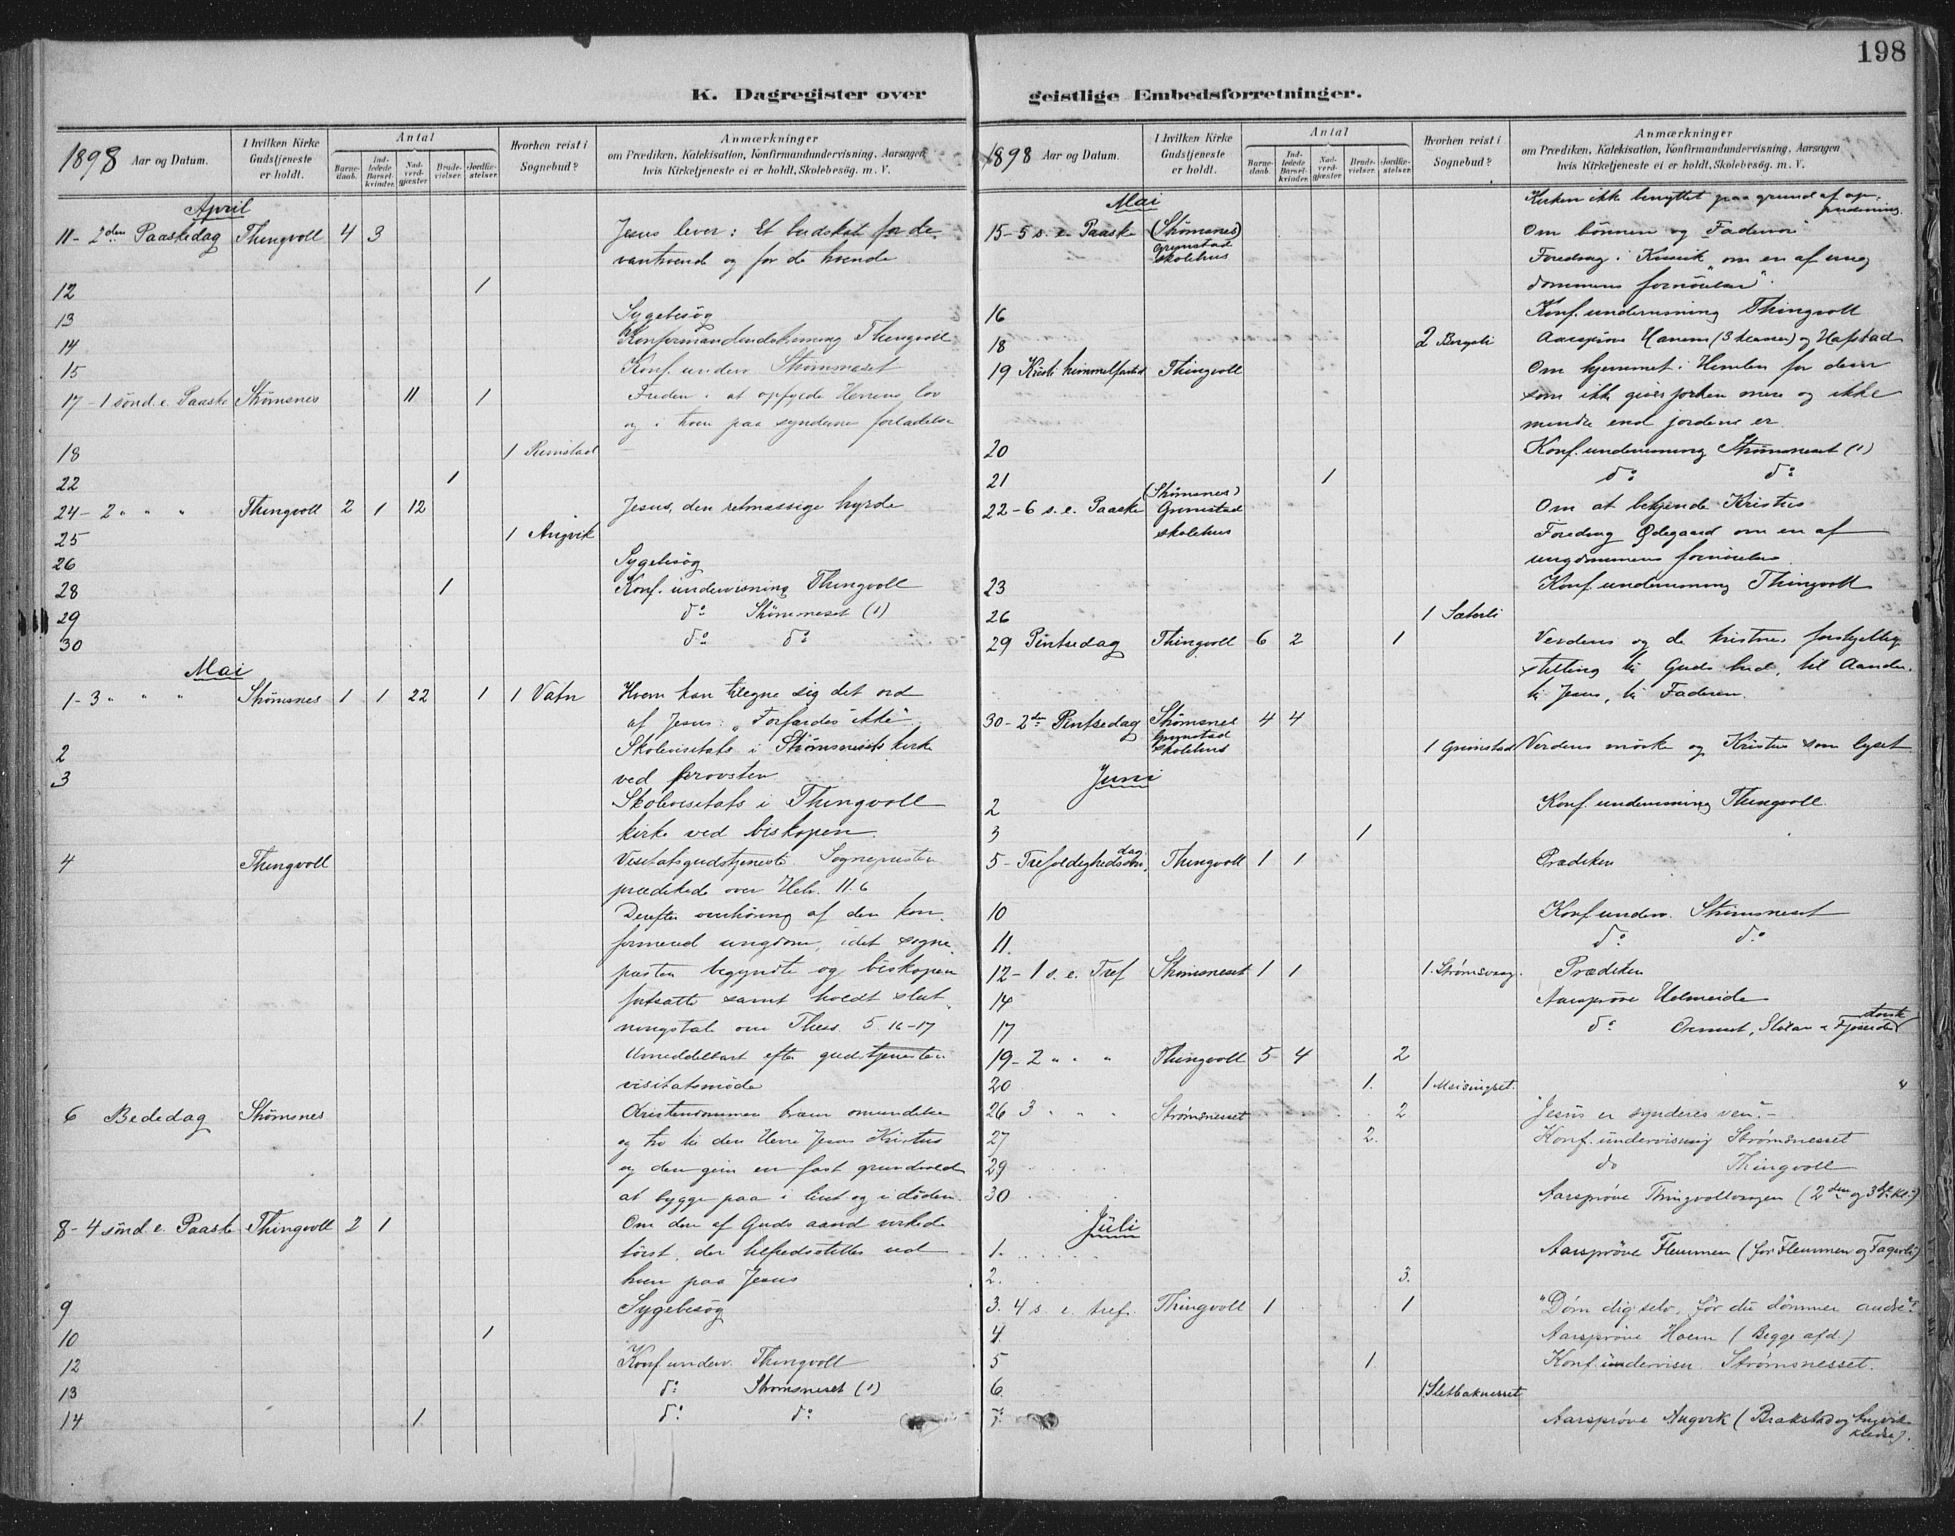 198
K. Dagregister over geistlige Embedsforretninger.
1898 Aar og Datum.
I hvilken Kirke Gudstjeneste er holdt.
Antal
Barnedaab.
Indledede Barselkvinder.
Nadverdgjæster
Brudevielser.
Jordfæstelser.
Hvorhen reist i Sognebud?
Anmærkninger
om Prædiken, Katekisation, Konfirmandundervisning, Aarsagen
hvis Kirketjeneste ei er holdt, Skolebesøg. m. V.
April
11 - 2den Paaskedag Thingvoll 4 3 Jesus lever: Et budskab for de
vantroende og for de troende
12 1
13 Sygebesøg
14 Thingvoll
15 Konf. underv. Strømsneset
17 - 1 sønd. e. Paaske Strømsnes 11 1 Freden i at opfylde Herrens lov
og i troen paa syndernes forladelse
18 1 Rimstad
22 1
24 - 2 " " " Thingvoll 2 1 12 Jesus, den retmæssige hyrde
25 1 Angvik
26 Sygebesøg
28 1 Konf. undervisning Thingvoll
29 do Strømsneset (1)
30 do do
Mai
1 - 3 " " " Strømsnes 1 1 22 1 1 Vatn Hvem kan tilegne sig det ord
af Jesus: "Forfærdes ikke"
2 Skolevisitats i Strømsnesets kirke
3 ved provsten
Skolevisitats i Thingvoll
kirke ved biskopen.
4 Thingvoll Visitatsgudstjeneste. Sognepresten
prædikede over Hebr. 11.6
Derefter overhøring af den kon-
firmered ungdom, idet sogne-
presten begyndte og biskopen
fortsatte samt holdt slut-
ningstale over Thess. 5. 16-17
Umiddelbart efter gudstjenesten
visitatsmøde
6 Bededag Strømsnes Kristendommen bærer omvendelse
og tro til den Herre Jesus Kristus
og den giver en fast grundvold
at bygge paa i livet og i døden.
8 - 4 sønd. e. Paaske Thingvoll 2 1 Om den af Guds aand virkede
tørst, der tilfredsstilles ved
troen paa Jesus
9 Sygebesøg
10 1
12 Konf. underv. Thingvoll
13 do Strømsneset (1)
14 1 do do
1898 Aar og Datum.
I hvilken Kirke Gudstjeneste er holdt.
Antal
Barnedaab.
Indledede Barselkvinder.
Nadverdgjæster
Brudevielser.
Jordfæstelser.
Hvorhen reist i Sognebud?
Anmærkninger
om Prædiken, Katekisation, Konfirmandundervisning, Aarsagen
hvis Kirketjeneste ei er holdt, Skolebesøg. m. V.
Mai Kirken ikke benyttet paa grund af op-
pudsning.
15 - 5 s. e. Paaske (Strømsnes) Grimstad skolehus Om bønnen og "Fadervor"
Foredrag i "om en af ung
dommens fornøielser".
16 Konf. undervisning Thingvoll
18 2 Bergsli Aarsprøve Hanem (3 klasser) og Hafstad
19 Kristi himmelfartsd Thingvoll Om hjemmet i Himlen for dem
som ikke giver jorden mere og ikke
mindre end jordens er
20 Konf. undervisning Strømsneset (1)
21 1 do do
22 - 6 s. e. Paaske (Strømsnes) Grimstad skolehus Om at bekjende Kristus
Foredrag Ødegaard om en af
ungdommens fornøielser
23 Konf. undervisning Thingvoll
26 1 Sæterli
29 Pintsedag Thingvoll 6 2 1 Verdens og de kristnes forskjellige
stilling til Guds bud, til Aanden,
til Jesus, til Faderen.
30 - 2den Pintsedag Strømsnes Grimstad skolehus 4 4
1 Grimstad Verdens mørke og Kristus som lyset
Juni
2 Konf. undervisning Thingvoll.
3 1
5 - Trefoldighedsøn.dag Thingvoll 1 1 Prædiken
10 Konf. underv. Strømsneset
11. do do
12 - 1 s. e. Tref Strømsneset 1 1 1. Strømsvaag. Prædiken
14 Aarsprøve Holmeide
17 do
19 - 2 " " " Thingvoll 5 4 2
20 1. 1 Meisingset. "
26 3 " " Strømsnesset 2 "Jesus er synderes ven". -
27 2. Konf. undervisning Strømsnesset
29 do Thingvoll
30 Aarsprøve Thingvollvaagen (2den og 3die kl.)
Juli
1. Aarsprøve Flemmen (for Flemmen og Fagerli)
2. 3.
3. 4 s. e. tref. Thingvoll 1 1 "Døm dig selv, før du dømmer andre"!
4. Aarsprøve Hoem (Begge afd.)
5 1. Konf. undervisn Strømsnesset.
6. 1 Sletbaknesset
7. Aarsprøve Angvik (Brakstad og Angvik
kreds).